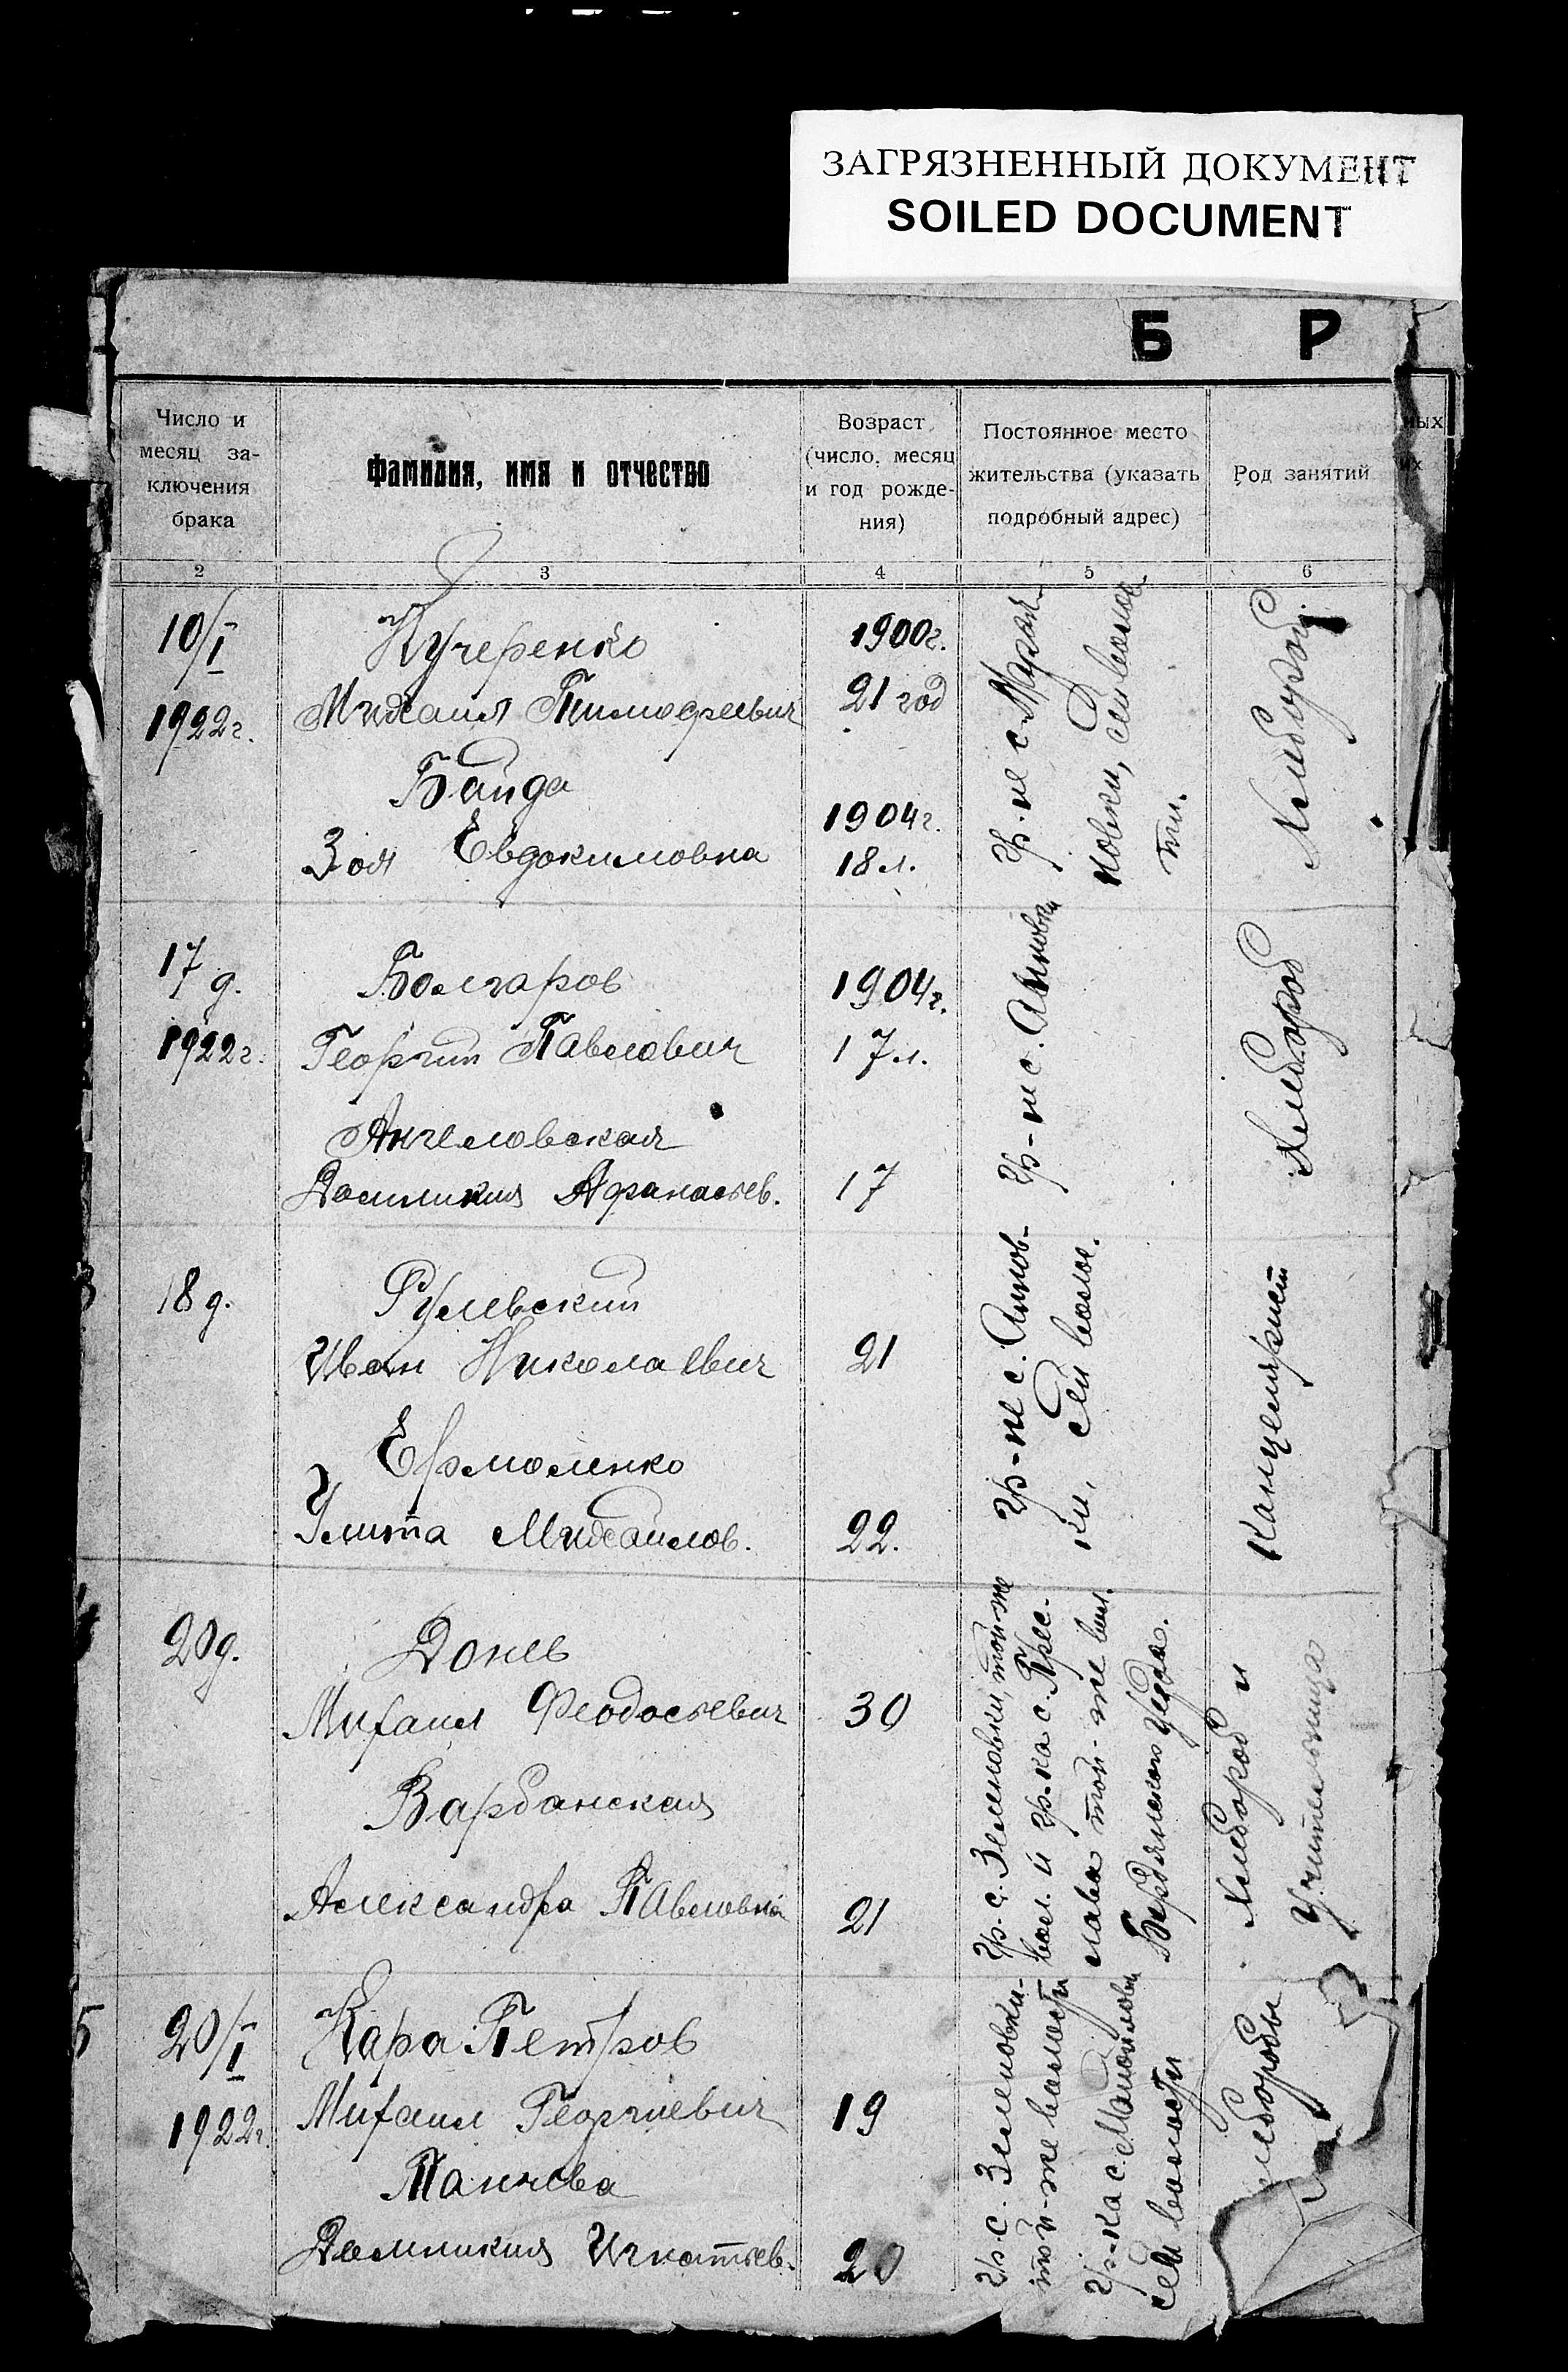 ЗАГРЯЗНЕННЫЙ ДОКУМЕНТ
SOILED DOCUMENT
Б Р
Число и
месяц за-
ключения
брака
Фамилия, имя и отчество
Возраст
(число, месяц
и год рожде-
ния)
Постоянное место
жительства (указать
подробный адрес)
Род занятий
ных
их
2 3 4 5 6
10/I
1922г.
Кучеренко
Михаил Тимофеевич
Байда
Зоя Евдокимовна
1900г.
21 год
1904г.
18 л.
гр-не с.
новки, сей волос
ти.
Хлебороб
17 д.
1922г.
Болгаров
Георгий Павлович
Ангеловская
Домникия Афанасьев.
1904г.
17 л.
17
гр-не с. Анновки
Хлебороб
18 д.
Рулевский
Иван Николаевич
Ермоленко
Улита Михайлов.
21
22.
гр-не с. Аннов-
ки, сей волос.
Канцелярист
20 д.
Донев
Михаил Феодосьевич
Варбанская
Александра Павловна
30
21
гр. с. Зеленовки, той-же
вол. и гр-ка с. Прес-
лава той-же вол.
Бердянского уезда.
Хлебороб и
Учительница
5
20/I
1922г.
Кара Петров
Михаил Георгиевич
Панчева
Домникия Игнатьев.
19
20
гр. с. Зеленовки-
той-же волости
гр-ка с. Мануйловки
сей волости
хлеборобы